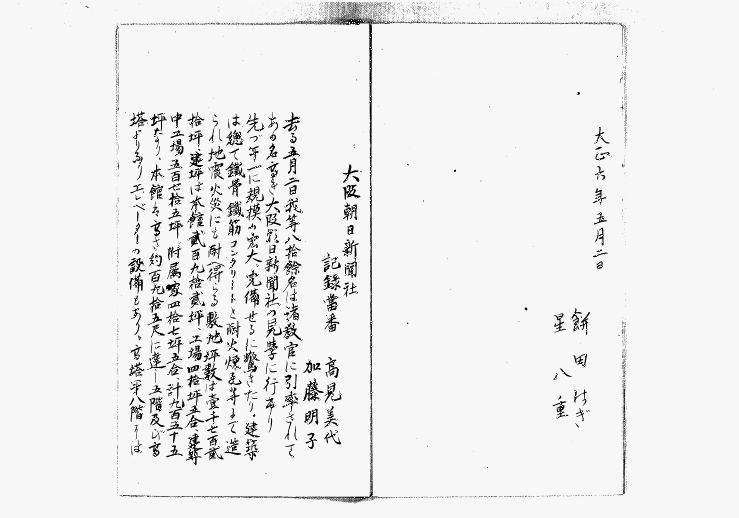 大正六年五月二日
餅田はぎ
星八重
大阪朝日新聞社
記録當番 高見美代
加藤明子
去る五月二日我等八拾餘名は諸教官に引率されて
あの名高き大阪朝日新聞社の見學に行けり
先づ第一に規模の宏大、完備せるに驚きたり、建築
は總て鐵骨鐵筋コンクリートと耐火煉瓦等より造
られ地震火災にも耐へ得らる敷地坪数は壹千七百貳
拾坪、建坪は本館貳百九拾貳坪、工場四拾坪五合、建築
中工場五百七拾五坪、附属家四拾七坪五合計九百五十五
坪なり、本館は高さ約百九拾五尺に達し五階及び高
塔よりなりエレベーターの設備もあり、高塔第八階よりは